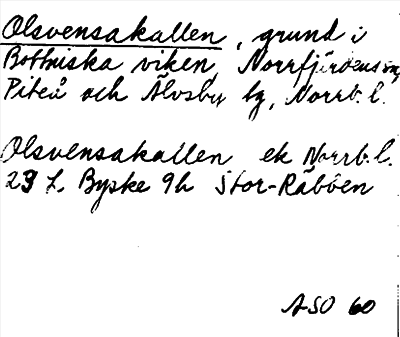 Olsvensakallen, grund i
Bottniska viken, Norrfjärdens sn,
Piteå och Älvsby tg, Norrb. l.
Olsvensakallen ek Norrb. l.
23 L Byske 9h Stor-Räbben
ASO 60